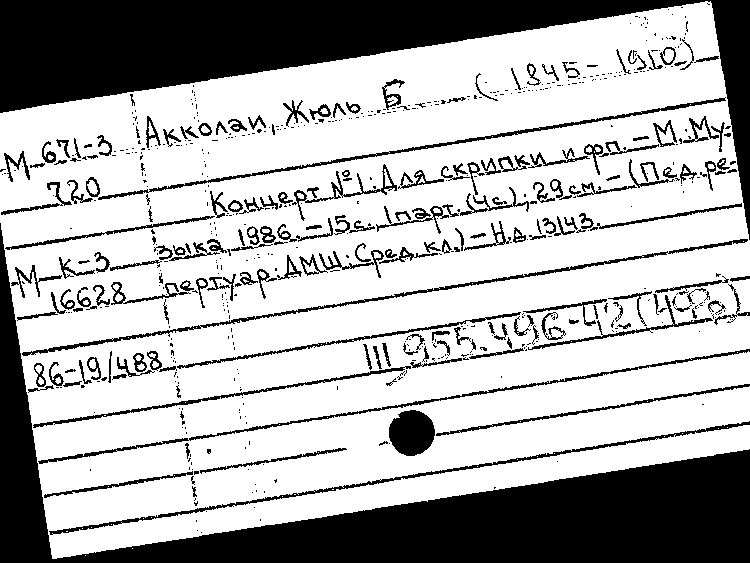 Акколаи, Жюль Б (1845-1910)
М 671-3
720
Концерт №1: Для скрипки и фп. - М.: Му-
зыка, 1986. - 15с., 1парт. (4с); 29см. - (Пед. ре-
пертуар: ДМШ: Сред. кл.) - Н.д. 13143.
М К-3
16628
86-19/488
III 955.496-42 (4Фр)